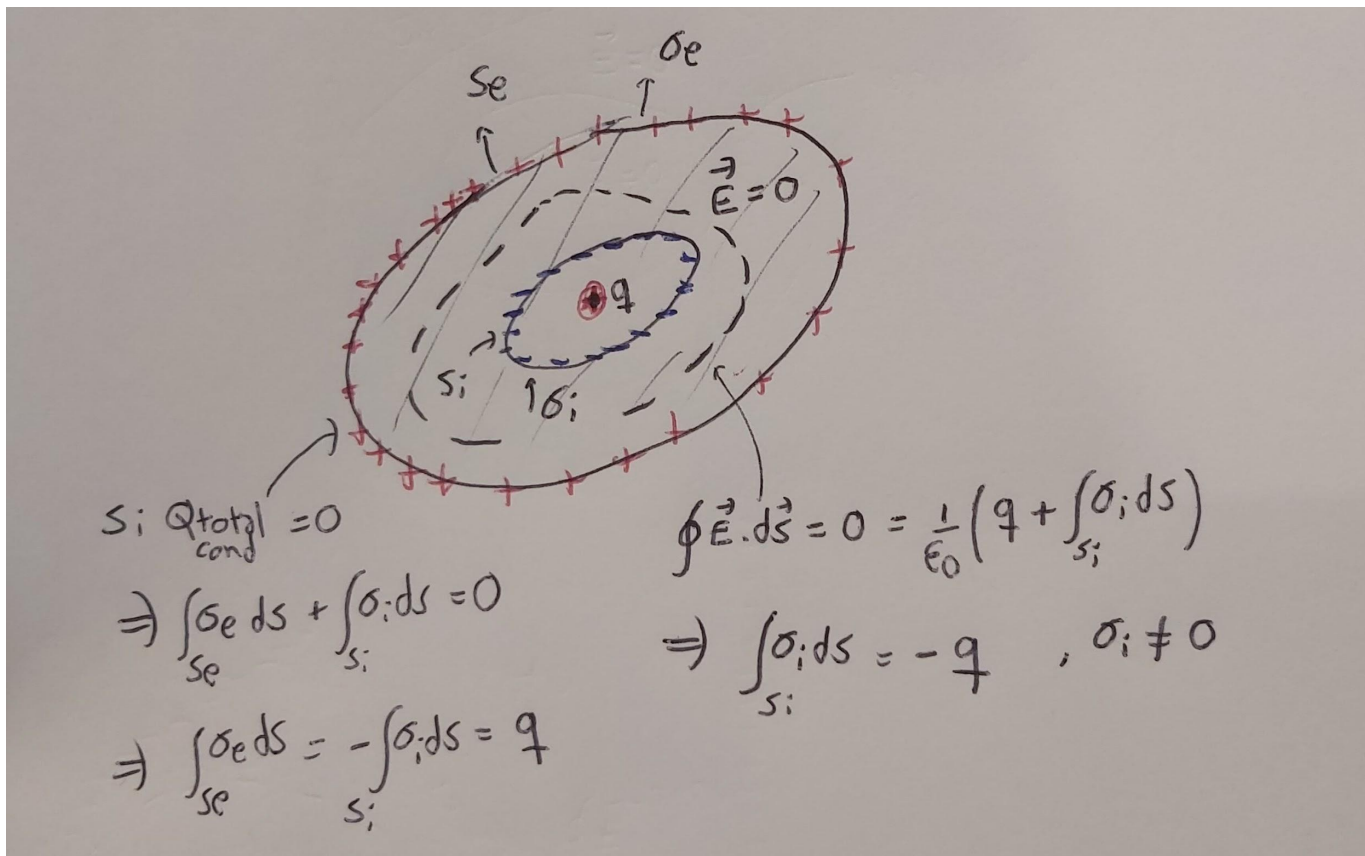 Se
σe
E⃗ = 0
q
Si
σi
Si Qtotal = 0
cond
⇒ ∫Se σe ds + ∫Si σi ds = 0
⇒ ∫Se σe ds = - ∫Si σi ds = q
∮ E⃗ . ds⃗ = 0 = 1/ε0 ( q + ∫Si σi ds )
⇒ ∫Si σi ds = - q , σi ≠ 0